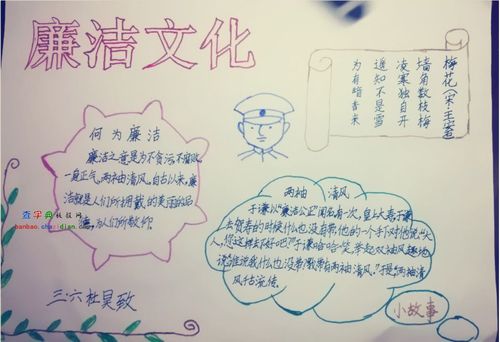 廉洁文化
何为廉洁
廉洁之意是为不贪污不腐败,
一身正气,两袖清风,自古以来,廉
洁就是人们所拥戴的美德的品
德,为人们所敬仰。
查字典板报网
banbao.chazidian.com
三.六杜昊致
梅花(宋·王
墙角数枝梅
凌寒独自开
遥知不是雪
为有暗香来
两袖清风
于谦以"廉洁公正"闻名。有一次,皇上大喜,于谦
去贺寿的时候什么也没有带,他的一个手下对他说:"大
人,您这样去不好吧?"于谦哈哈笑,举起双袖风趣地
说:"谁说我什么也没带?我带有两袖清风。"于是"两袖清
风"千古流传。
小故事